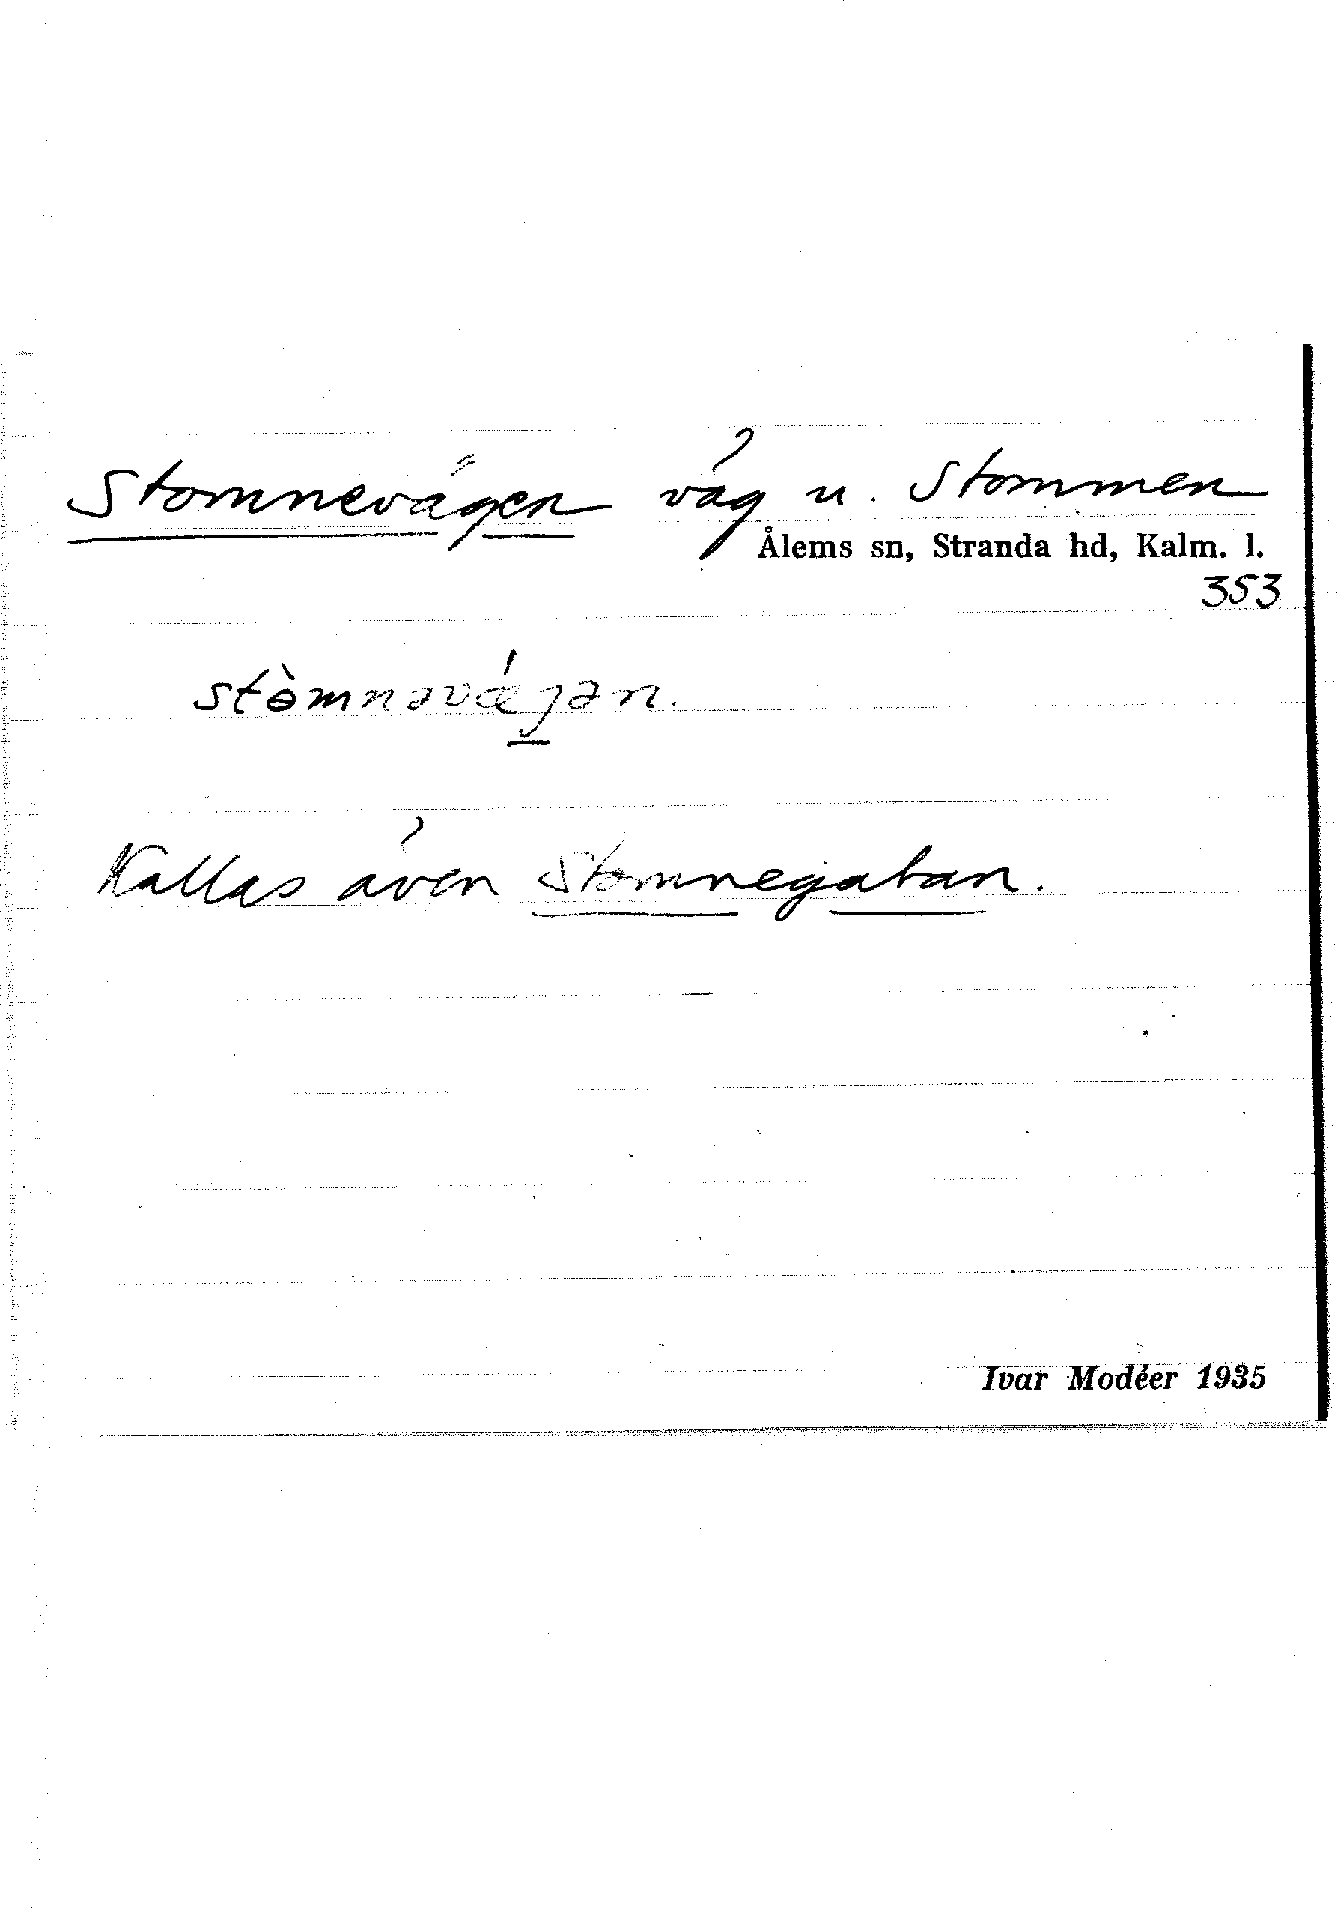 Stomnevägen väg u. Stommen
Ålems sn, Stranda hd, Kalm. l.
353
stòmnəvǽgən.
Kallas även Stomnegatan.
Ivar Modéer 1935